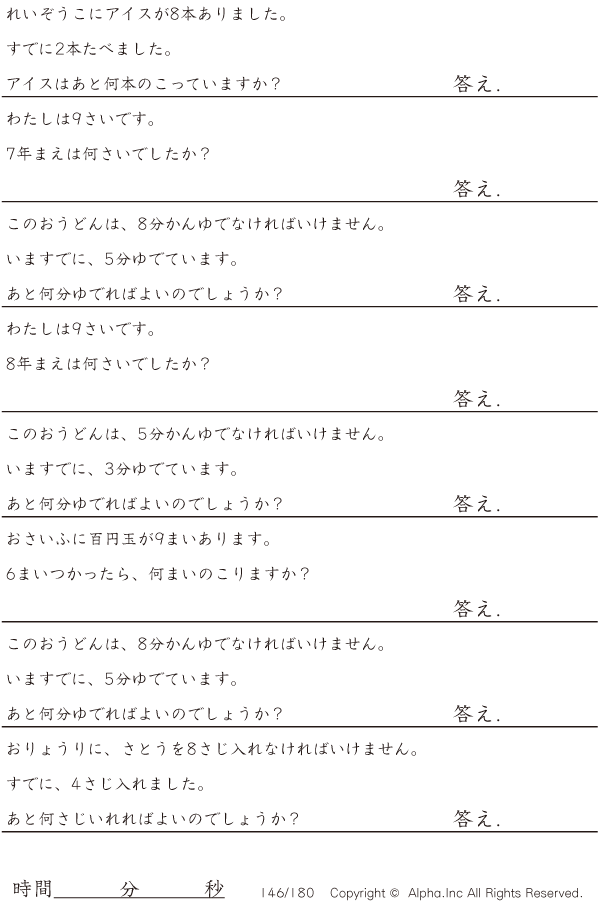 れいぞうこにアイスが8本ありました。
すでに2本たべました。
アイスはあと何本のこっていますか？ 答え.
わたしは9さいです。
7年まえは何さいでしたか？
答え.
このおうどんは、8分かんゆでなければいけません。
いますでに、5分ゆでています。
あと何分ゆでればよいのでしょうか？ 答え.
わたしは9さいです。
8年まえは何さいでしたか？
答え.
このおうどんは、5分かんゆでなければいけません。
いますでに、3分ゆでています。
あと何分ゆでればよいのでしょうか？ 答え.
おさいふに百円玉が9まいあります。
6まいつかったら、何まいのこりますか？
答え.
このおうどんは、8分かんゆでなければいけません。
いますでに、5分ゆでています。
あと何分ゆでればよいのでしょうか？ 答え.
おりょうりに、さとうを8さじ入れなければいけません。
すでに、4さじ入れました。
あと何さじいれればよいのでしょうか？ 答え.
時間 分 秒 146/180 Copyright © Alpha.Inc All Rights Reserved.